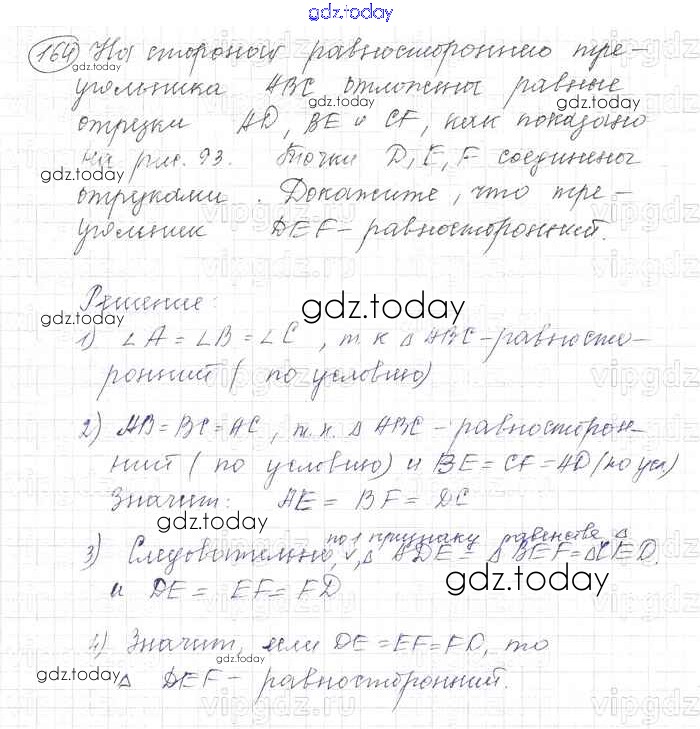 gdz.today
164 На сторонах равностороннего тре-
gdz.today
угольника ABC отложены равные
gdz.today
gdz.today
отрезки AD, BE и CF, как показано
на рис. 93. Точки D, E, F соединены
gdz.today
gdz.today
отрезками. Докажите, что тре-
vipgdz
угольник DEF – равносторонний.
Решение:
gdz.today
gdz.today
1) ∠A = ∠B = ∠C, т.к. △ABC – равносто-
ронний (по условию)
2) AB = BC = AC, т.к. △ABC – равносторон-
ний (по условию) и BE = CF = AD (по усл)
Значит: AE = BF = DC
gdz.today
по 1 признаку равенства △
3) Следовательно, △ADE = △BEF = △CED.
gdz.today
и DE = EF = FD
4) Значит, если DE = EF = FD, то
gdz.today
△ DEF – равносторонний.
gdz.today